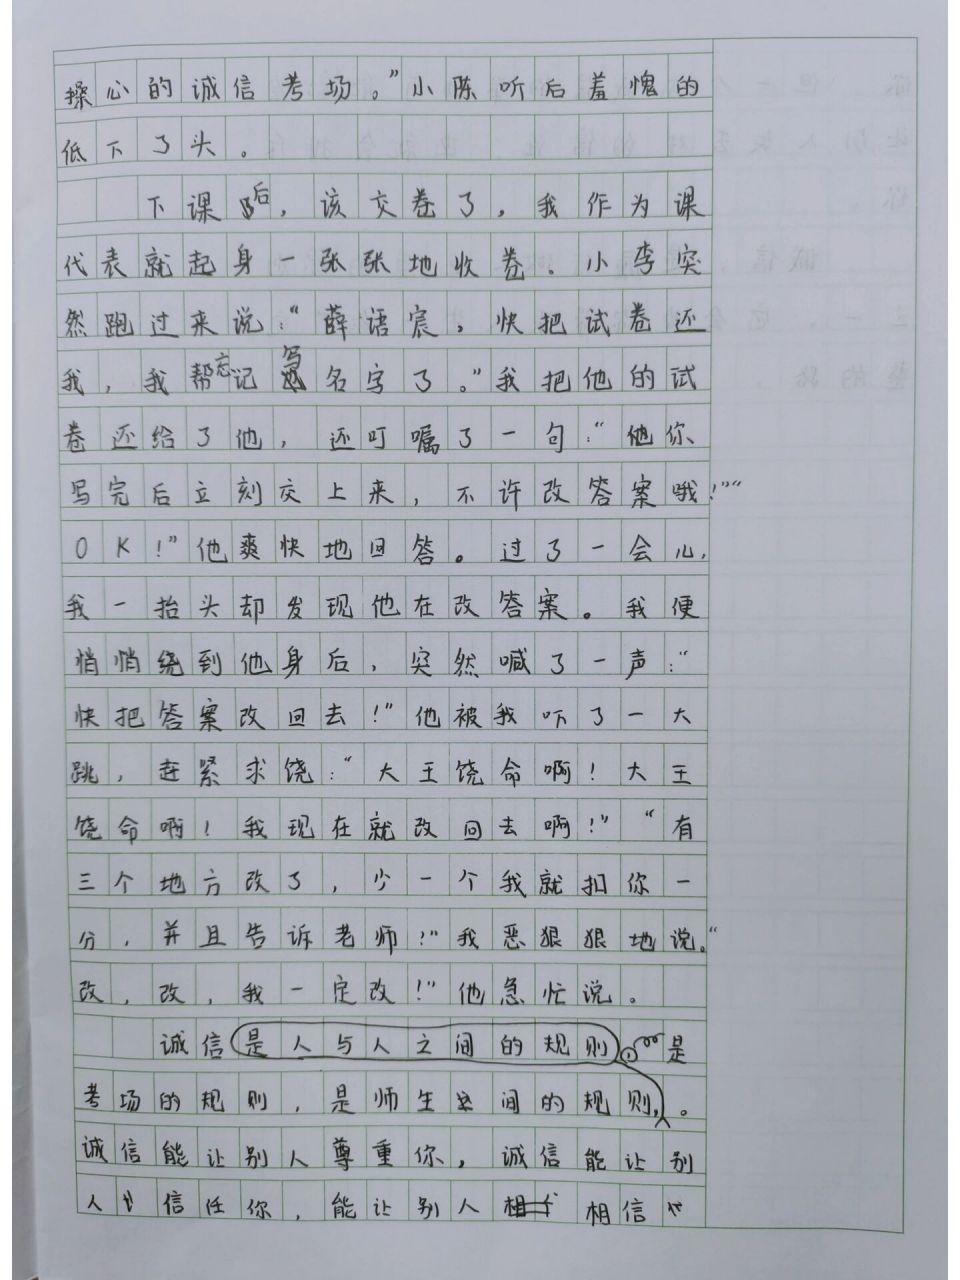 操心的诚信考场。”小陈听后羞愧的
低下了头。
下课后，该交卷了，我作为课
代表就起身一张张地收卷。小李突
然跑过来说：“薛语宸，快把试卷还
我，我帮忘记写名字了。”我把他的试
卷还给了他，还叮嘱了一句：“他你
写完后立刻交上来，不许改答案哦！”“
OK！”他爽快地回答。过了一会儿，
我一抬头却发现他在改答案。我便
悄悄绕到他身后，突然喊了一声：“
快把答案改回去！”他被我吓了一大
跳，赶紧求饶：“大王饶命啊！大王
饶命啊！我现在就改回去啊！”“有
三个地方改了，少一个我就扣你一
分，并且告诉老师！”我恶狠狠地说。“
改，改，我一定改！”他急忙说。
诚信是人与人之间的规则，是
考场的规则，是师生之间的规则，。
诚信能让别人尊重你，诚信能让别
人信任你，能让别人相信